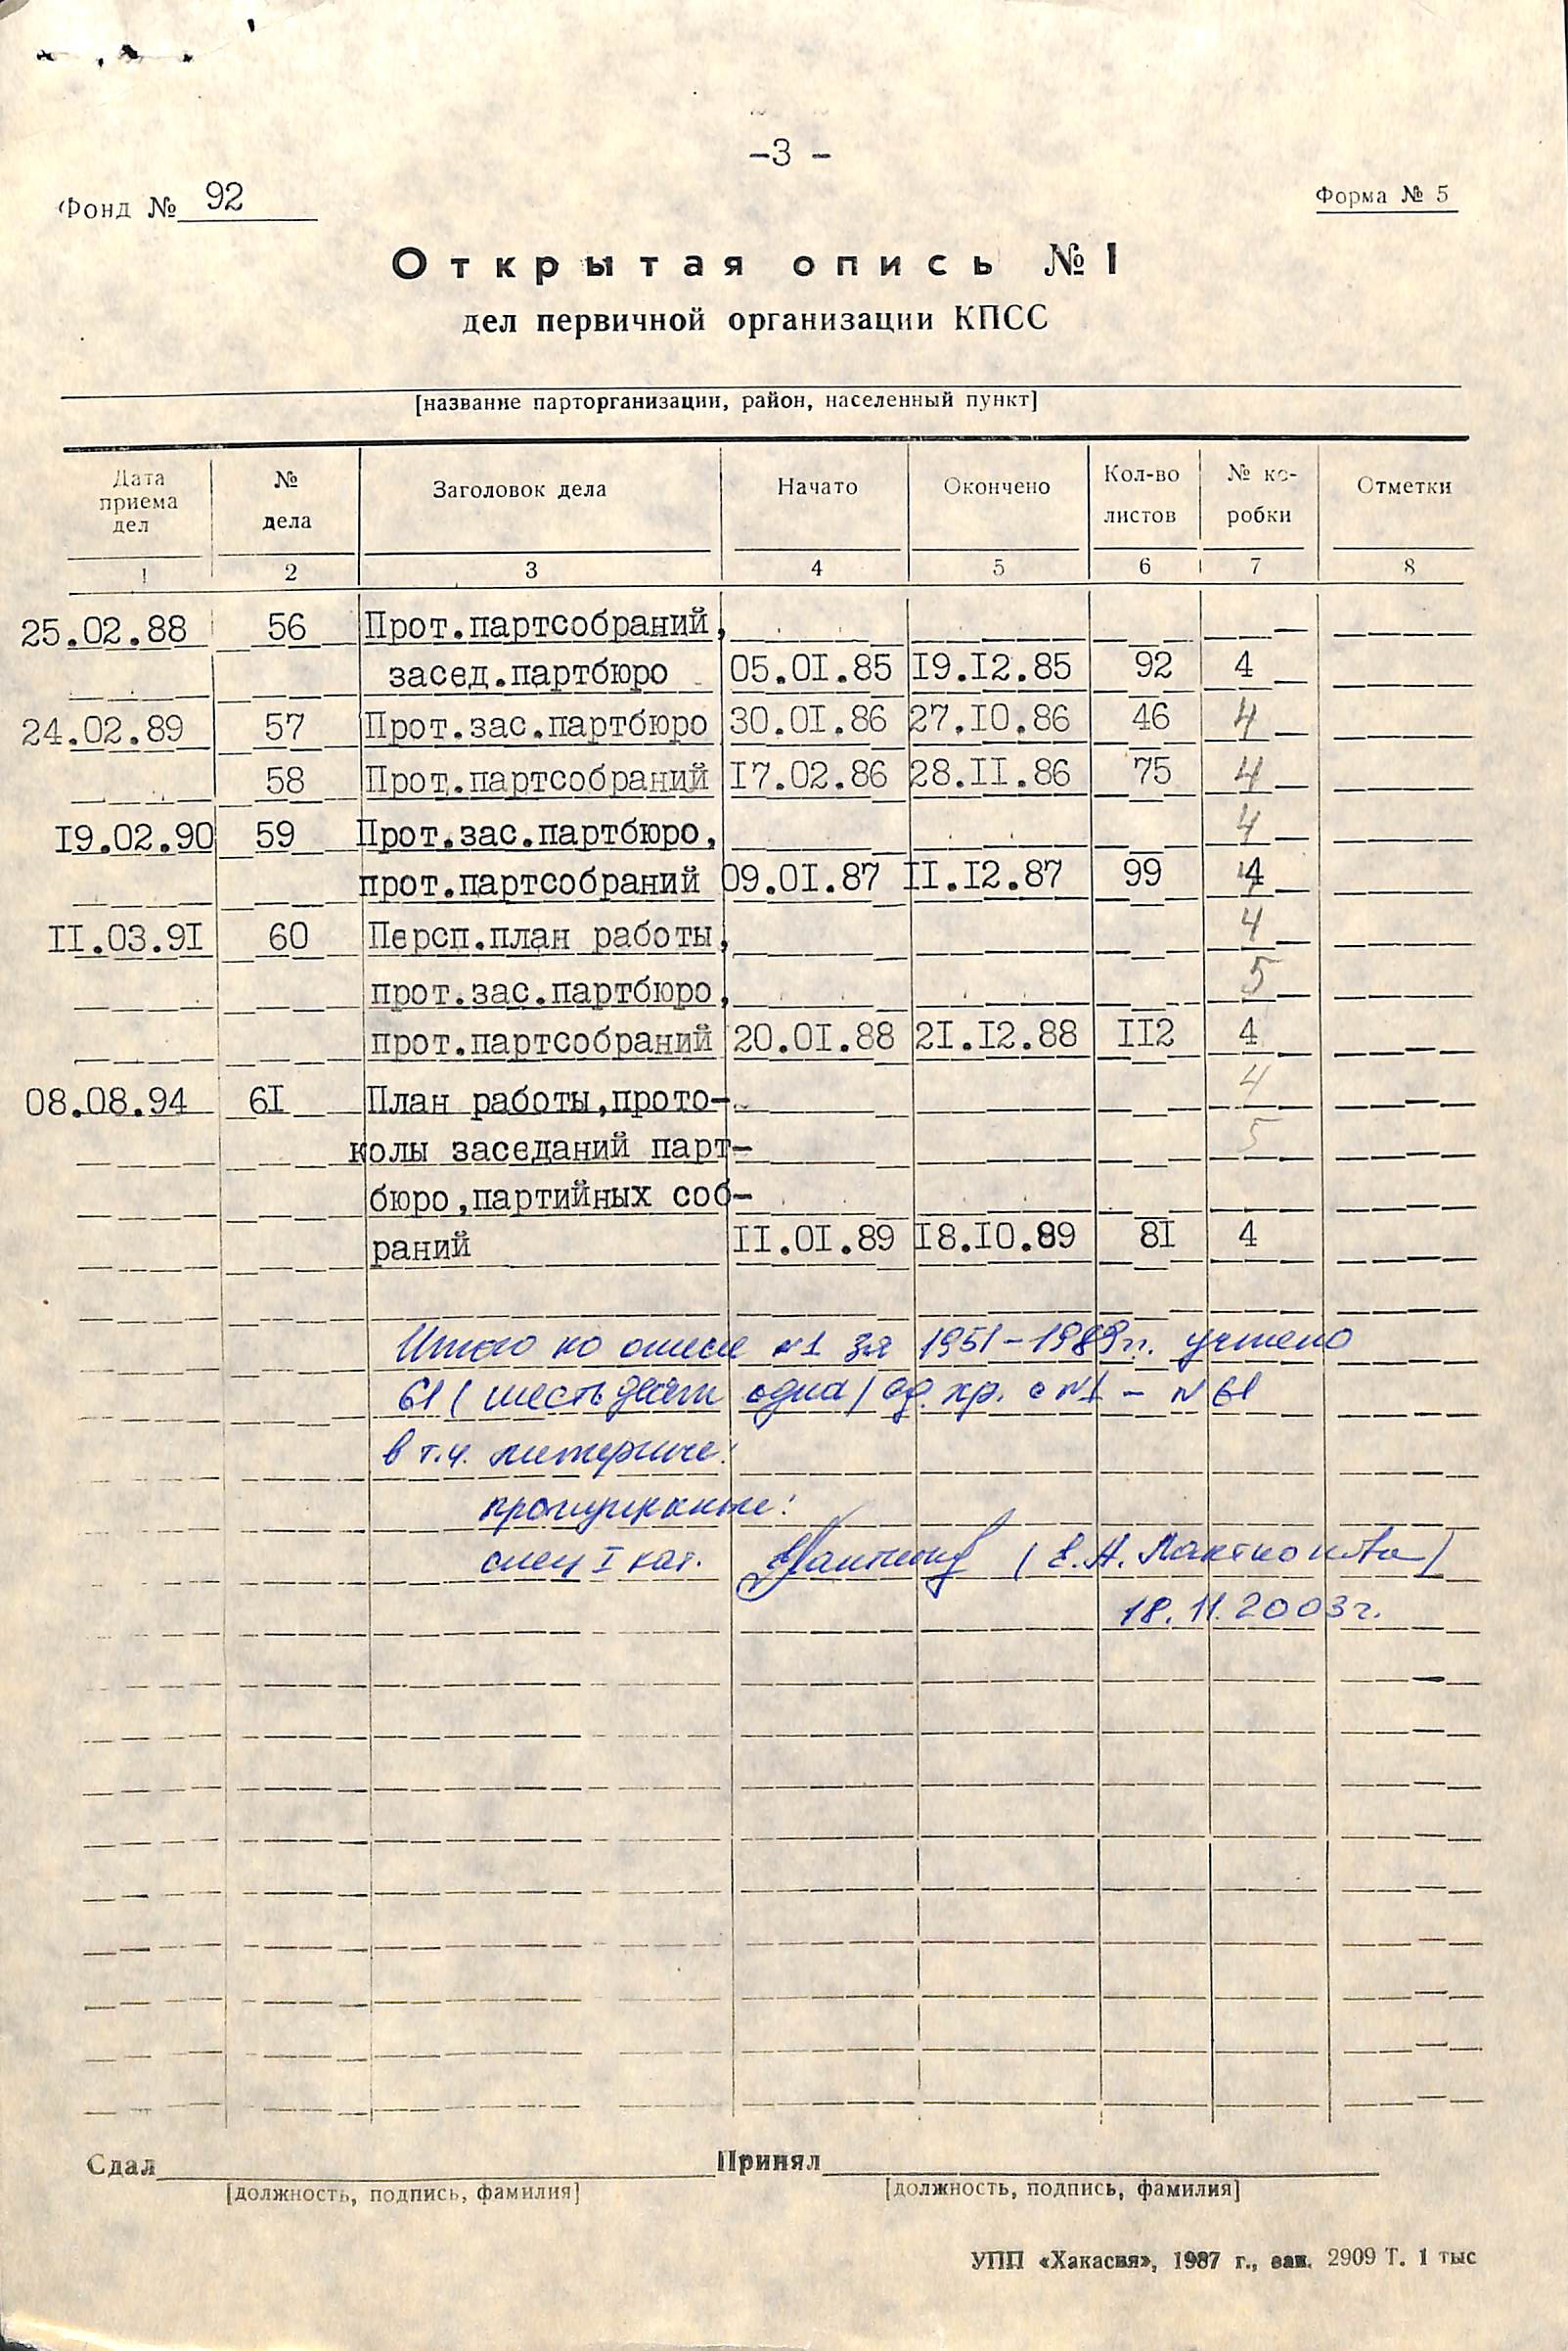 -3 -
Фонд № 92
Форма № 5
Открытая опись № I
дел первичной организации КПСС
[название парторганизации, район, населенный пункт]
Дата приема дел № дела Заголовок дела Начато Окончено Кол-во листов № ко-робки Отметки
1 2 3 4 5 6 7 8
25.02.88 56 Прот.партсобраний,
засед.партбюро 05.01.85 19.12.85 92 4
24.02.89 57 Прот.зас.партбюро 30.01.86 27.10.86 46 4
58 Прот.партсобраний 17.02.86 28.II.86 75 4
I9.02.90 59 Прот.зас.партбюро, 4
прот.партсобраний 09.01.87 II.I2.87 99 4
II.03.9I 60 Персп.план работы, 4
прот.зас.партбюро, 5
прот.партсобраний 20.0I.88 2I.I2.88 II2 4
08.08.94 6I План работы,прото- 4
колы заседаний парт- 5
бюро,партийных соб-
раний II.0I.89 I8.I0.89 8I 4
Итого по описи №1 за 1951-1989гг. учтено
61 (шестьдесят одна) ед. хр. с №1 - №61
в т.ч. литерные:
пропущенные:
спец I кат. (Е.А.
18.11.2003г.
Сдал Принял
[должность, подпись, фамилия] [должность, подпись, фамилия]
УПП «Хакасия», 1987 г., зак. 2909 Т. 1 тыс